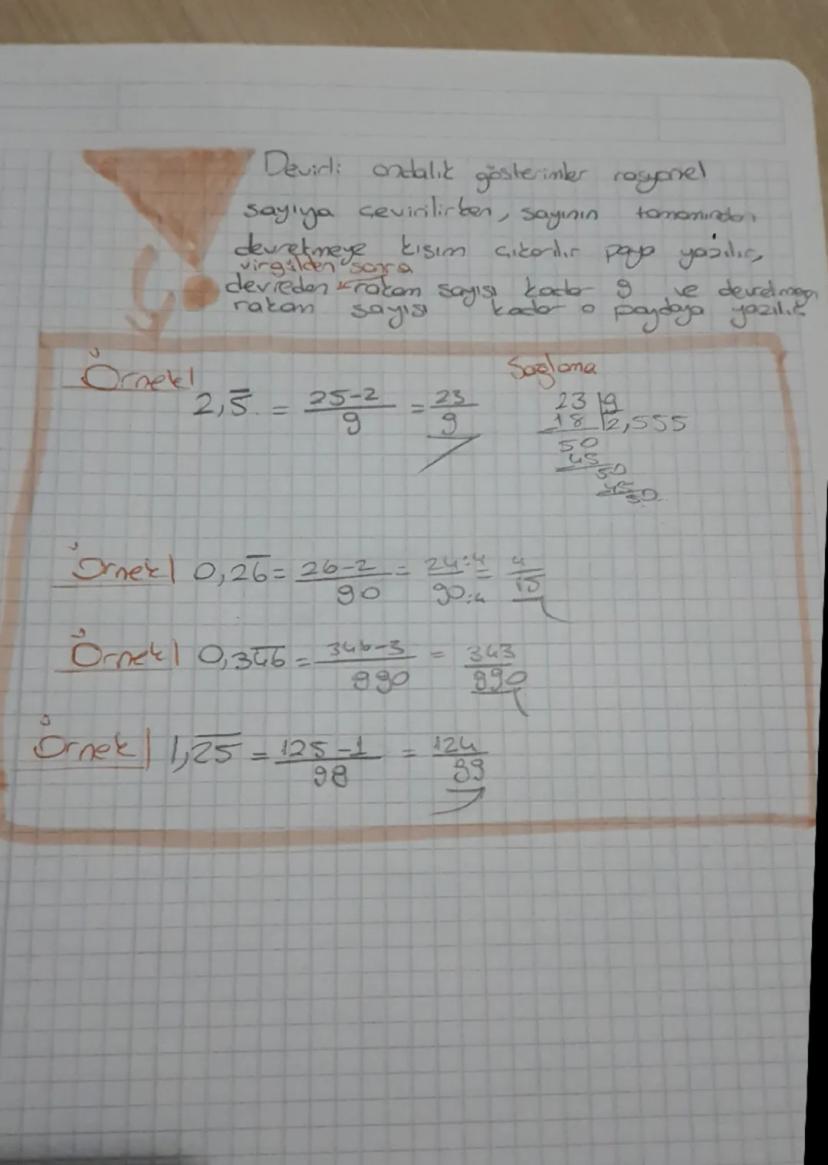 Devirli ondalık gösterimler rasyonel
sayıya çevirilirken, sayının tamamından
devretmeye kısım çıkarılır paya yazılır,
virgülden sonra
devreden rakam sayısı kadar 9 ve devretmeyen
rakam sayısı kadar 0 paydaya yazılır.
Örnek| 2,5̅ = 25-2/9 = 23/9
Sağlama
23 | 9
18 | 2,555
50
45
50
45
50
Örnek| 0,26̅ = 26-2/90 = 24:4/90:4 = 4/15
Örnek| 0,34̅6̅ = 346-3/990 = 343/990
Örnek| 1,2̅5̅ = 125-1/99 = 124/99